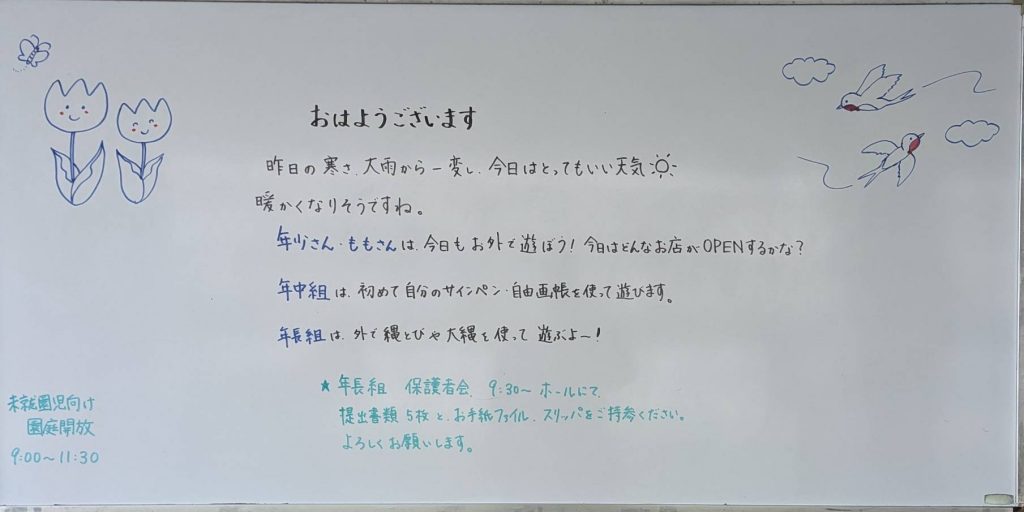 おはようございます
昨日の寒さ、大雨から一変し、今日はとってもいい天気
暖かくなりそうですね。
年少さん・ももさんは、今日もお外で遊ぼう！今日はどんなお店がOPENするかな？
年中組は、初めて自分のサインペン・自由画帳を使って遊びます。
年長組は、外で縄とびや大縄を使って遊ぶよ〜！
★年長組 保護者会 9:30〜ホールにて、
提出書類5枚と、お手紙ファイル、スリッパをご持参ください。
よろしくお願いします。
未就園児向け
園庭開放
9:00〜11:30